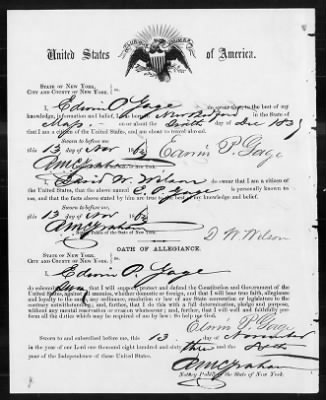 United States of America.
STATE OF NEW YORK,
CITY AND COUNTY OF NEW YORK.
I, Edwin P. Gage do swear that, to the best of my
knowledge, information and belief, I was born in New Bedford
Mass on or about the day of Dec 183
that I am a citizen of the United States, and am about to travel abroad.
Sworn to before me,
this 13 day of Nov 186 Edwin P. Gage
AMGraham
I, David W. Wilson do swear that I am a citizen of
the United States, that the above named E. P. Gage is personally known to
me, and that the facts above stated by him are true to the best of my knowledge and belief.
Sworn to before me,
this 13 day of Nov 186
AMGraham D W Wilson
Notary Public of the State of New York.
OATH OF ALLEGIANCE.
STATE OF NEW YORK,
CITY AND COUNTY OF NEW YORK.
I, Edwin P. Gage
do that I will support, protect and defend the Constitution and Government of the
United States, against all enemies, whether domestic or foreign, and that I will bear true faith, allegiance
and loyalty to the same, any ordinance, resolution or law of any State convention or legislature to the
contrary notwithstanding; and, further, that I do this with a full determination, pledge and purpose,
without any mental reservation or evasion whatsoever; and, further, that I will well and faithfully perform
all the duties which may be required of me by law: So help me God.
Edwin P. Gage
Sworn to and subscribed before me, this 13 day of November
in the year of our Lord one thousand eight hundred and sixty three and
year of the Independence of these United States.
AMGraham
Notary Public of the State of New York.